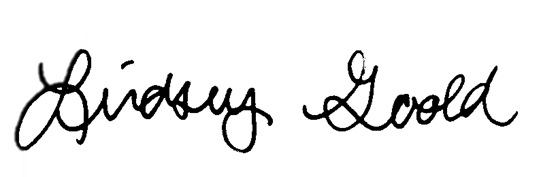 Lindsey Goold